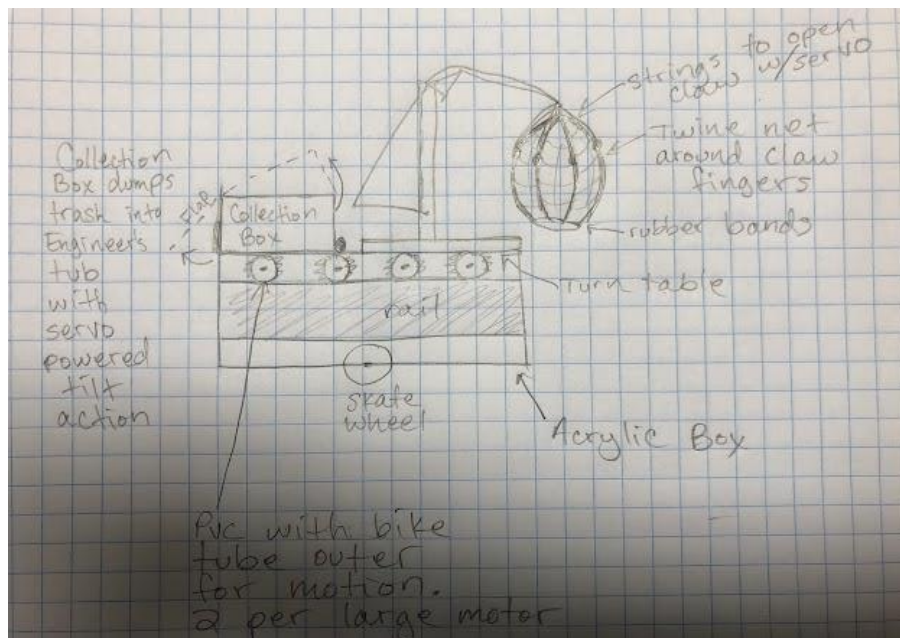 strings to open
claw w/servo
Twine net
around claw
fingers
rubber bands
Turn table
Collection
Box dumps
trash into
Engineers
tub
with
servo
powered
tilt
action
Flap
Collection
Box
rail
skate
wheel
Acrylic Box
PVC with bike
tube outer
for motion.
2 per large motor